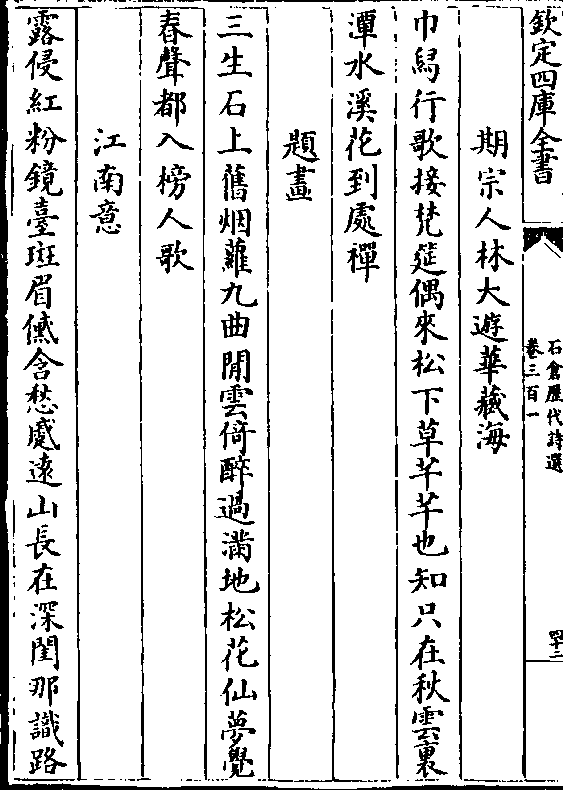 欽定四庫全書
石倉歷代詩選
卷三百一
四十二
期宗人林大遊華藏海
巾舄行歌接梵筵偶來松下草芊芊也知只在秋雲裏
潭水溪花到處禪
題畫
三生石上舊烟蘿九曲閒雲倚醉過滿地松花仙夢覺
春聲都入榜人歌
江南意
露侵紅粉鏡臺斑眉黛含愁蹙遠山長在深閨那識路